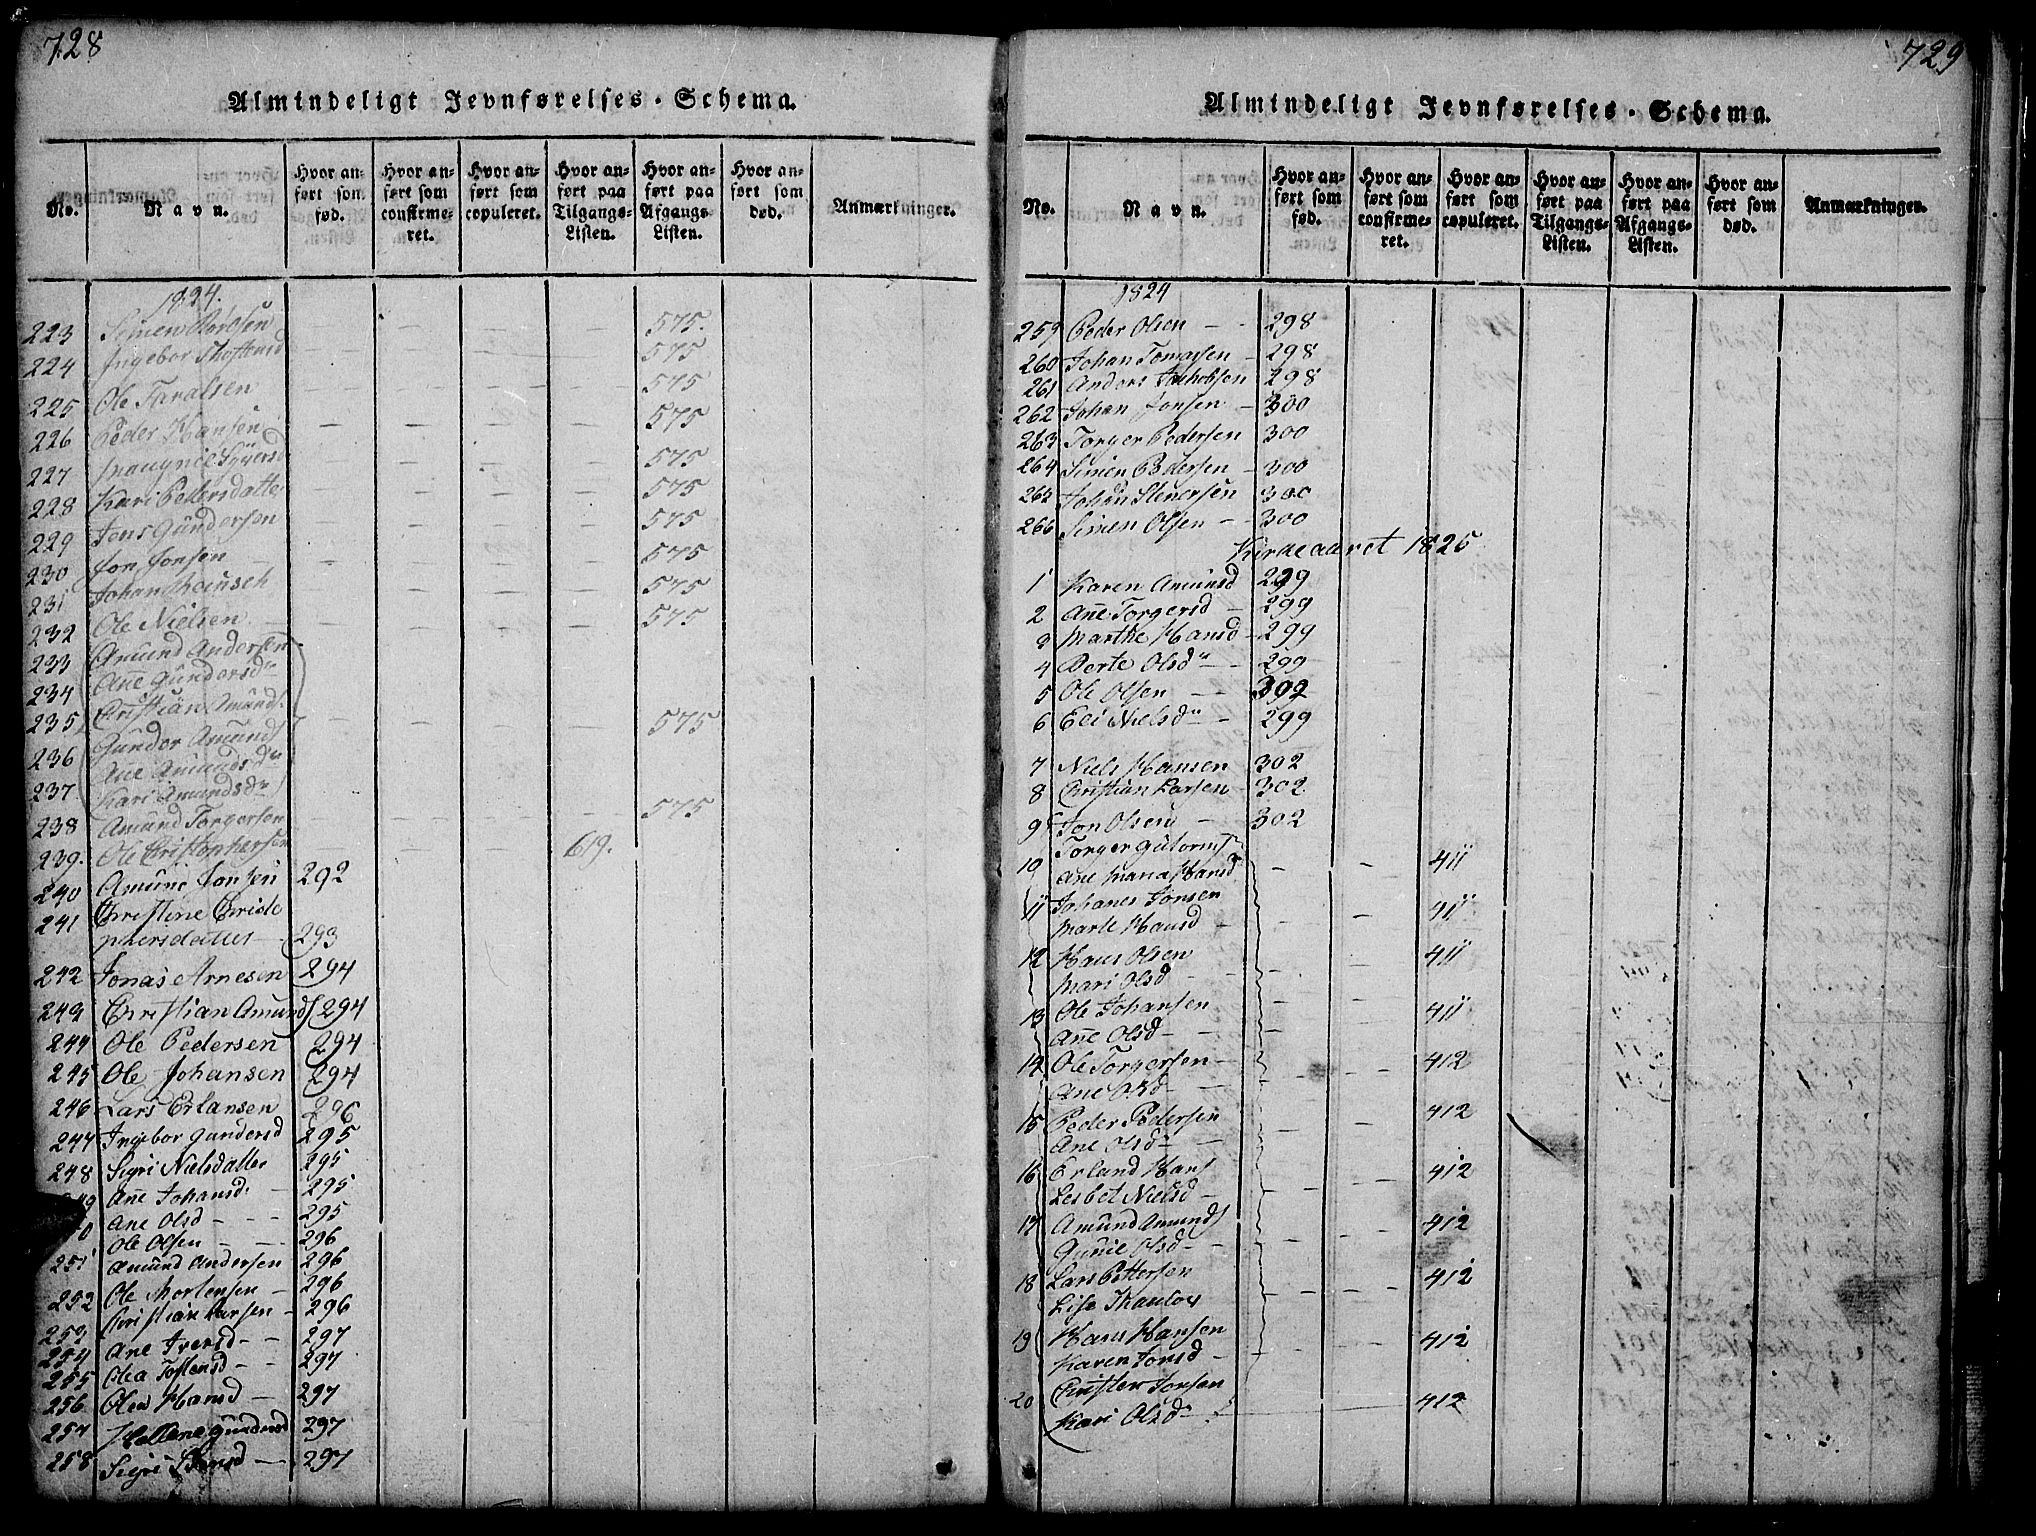 728
Almindeligt Jevnførelses-Schema.
No.
Navn.
Hvor anført som fød.
Hvor anført som confirmeret.
Hvor anført som copuleret.
Hvor anført paa Tilgangs-Listen.
Hvor anført paa Afgangs-Listen.
Hvor anført som død.
Anmærkninger.
1824.
223 Simen 575.
224 Ingebor 575
225 Ole Taralsen 575
226 Peder Hansen 575
227 575
228 Kari Pedersdatter 575
229 Jens Gundersen 575
230 Jon Jonsen 575
231 Johan 575
232 Ole Nielsen 575
233 Amund Andersen
234 Ane Gundersdr
235 Cristian Amunds 575
Gundor Amunds
236 Ane Amundsdr
237 Kari Amundsdr
238 Amund Torgersen 575
239. Ole Christophersen 619.
240 Amund Jonsen 292
241 Christine Christo
phersdatter 293
242 Jonas Arnesen 294
243 Christian Amunds 294
244 Ole Pedersen 294
245 Ole Johansen 294
246 Lars Erlansen 296
247 Ingebor Gundersd 295
248 Sigri Nielsdatter 295
Ane Johansd 295
Ane Olsd 295
251 Ole Olsen 296
Amund Andersen 296
252 Ole Mortensen 296
253 Christian Larsen 296
254 Ane Iversd 297
255 Olea Tostensd 297
256 Olea Hansd 297
257 Hellene Gundersd 297
258 Sigri 297
729
Almindeligt Jevnførelses-Schema.
No.
Navn.
Hvor anført som fød.
Hvor anført som confirmeret.
Hvor anført som copuleret.
Hvor anført paa Tilgangs-Listen.
Hvor anført paa Afgangs-Listen.
Hvor anført som død.
Anmærkninger.
1824
259 Peder Olsen 298
260 Johan Tomassen 298
261 Anders Jakobsen 298
262 Johan Jonsen 300
263 Torger Pedersen 300
264 Simen Pedersen 300
265 Johan Stenersen 300
266 Simen Olsen 300
Kirkeaaret 1825
1 Karen Amunsd 299
2 Ane Torgersd 299
3 Marthe Hansd 299
4 Berte Olsdr 299
5 Ole Olsen 302
6 Eli Nielsdr 299
7 Niels Hansen 302
8 Christian Larsen 302
9 Jon Olsen 302
10 Torger Gutorms 411
Ane Maria Hansd
11 Johanes Jonsen 411
Marte Hansd
12 Hans Olsen 411
Mari Olsd
13 Ole Johansen 411
Ane Olsd
14 Ole Torgersen 412
Ane Olsd
15 Peder Pedersen 412
Ane Olsdr
16 Erland Hans 412
Lesbet Nielsd
17 Amund Amunds 412
Gunie Olsd
18 Lars Pettersen 412
Lise
19 Hans Hansen 412
Karen Jonsd
20 Christen Jonsen 412
Kari Olsdr